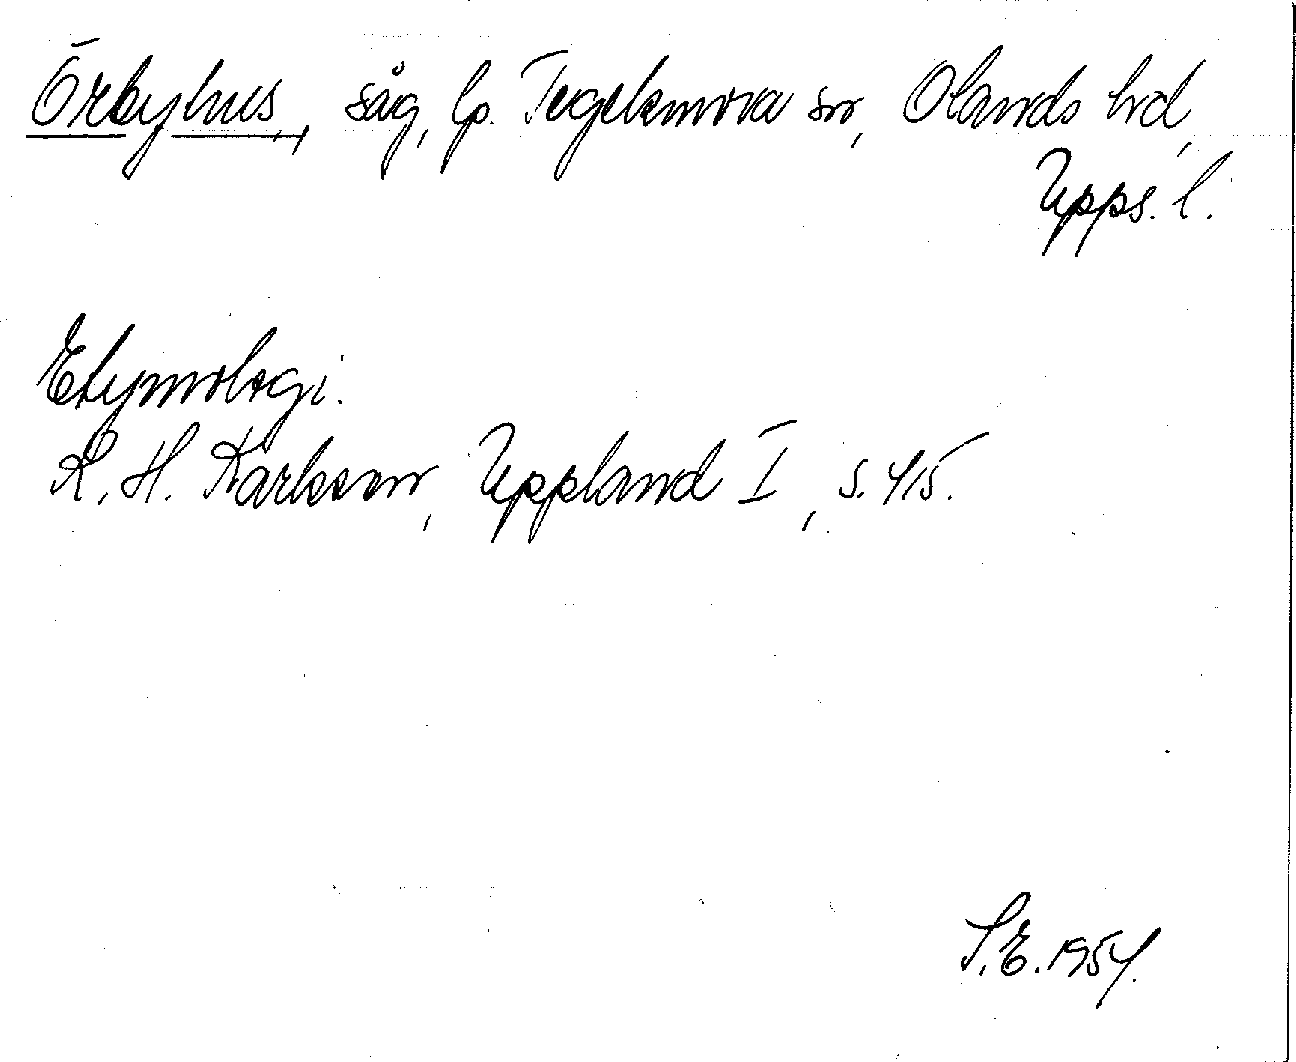 Örbyhus, såg, lp. Tegelsmora sn, Olands hd,
Upps. l.
Etymologi.
K. H. Karlsson, Uppland I, s. 415.
S. E. 1954.